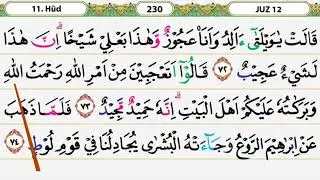 11. Hūd 230 JUZ 12
قَالَتْ يٰوَيْلَتٰٓى ءَاَلِدُ وَاَنَا۠ عَجُوْزٌ وَّهٰذَا بَعْلِيْ شَيْخًا ۗاِنَّ هٰذَا
لَشَيْءٌ عَجِيْبٌ ٧٢ قَالُوْٓا اَتَعْجَبِيْنَ مِنْ اَمْرِ اللّٰهِ رَحْمَتُ اللّٰهِ
وَبَرَكٰتُهٗ عَلَيْكُمْ اَهْلَ الْبَيْتِ ۗاِنَّهٗ حَمِيْدٌ مَّجِيْدٌ ٧٣ فَلَمَّا ذَهَبَ
عَنْ اِبْرٰهِيْمَ الرَّوْعُ وَجَاۤءَتْهُ الْبُشْرٰى يُجَادِلُنَا فِيْ قَوْمِ لُوْطٍ ٧٤